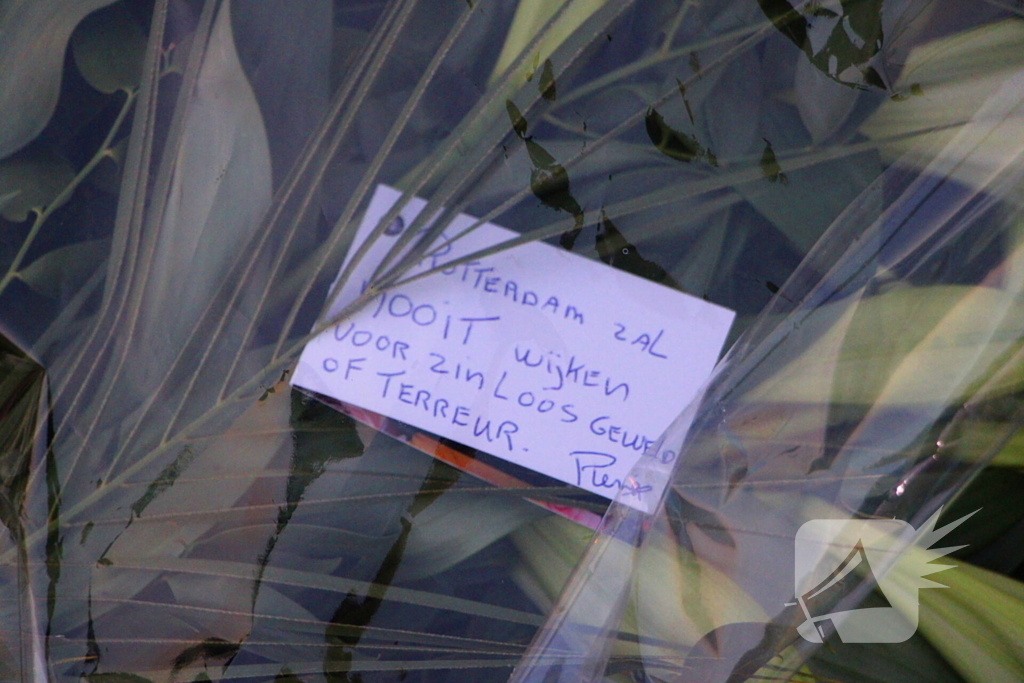 ROTTERDAM ZAL
NOOIT wijKEN
VOOR ZinLOOS GEWELD
OF TERREUR.